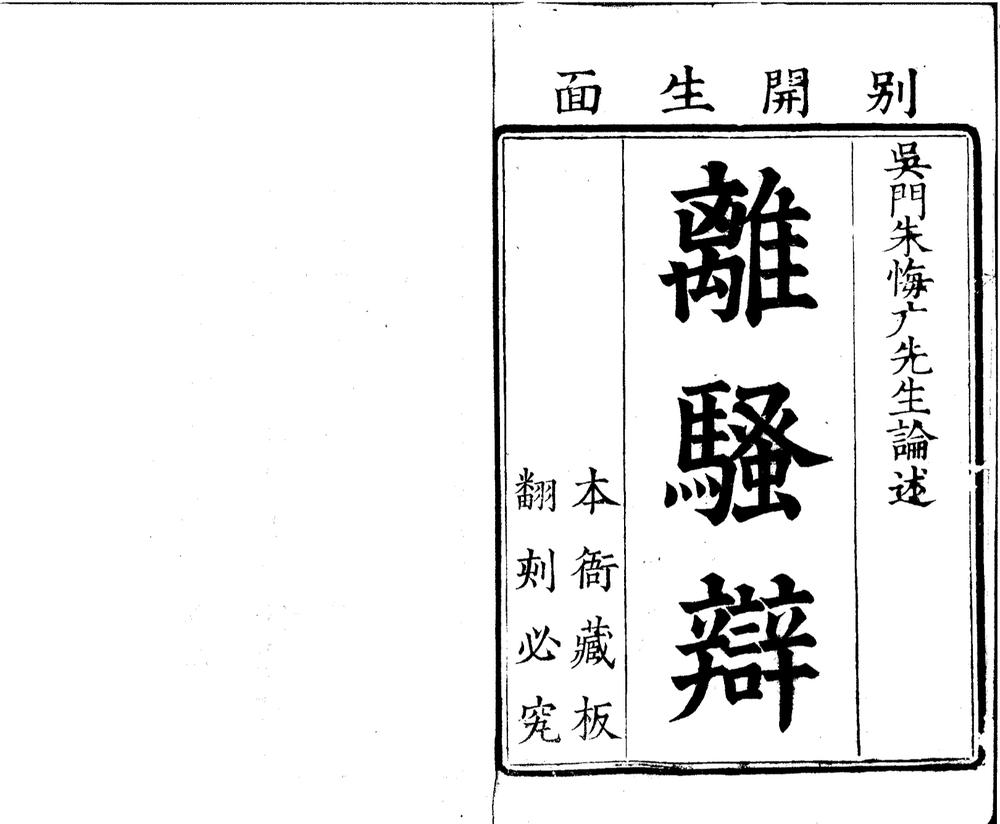 别開生面
吳門朱悔广先生論述
離騷辯
本衙藏板
翻刻必究